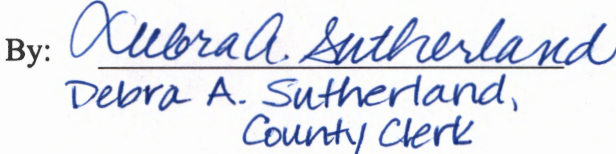 By: Debra A. Sutherland
Debra A. Sutherland,
County Clerk